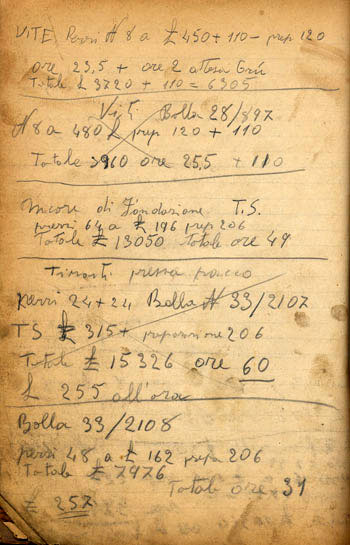 VITE Pezzi N 8 a £ 450 + 110 - prep 120
ore 23,5 + ore 2 attesa Grù
Totale £ 3720 + 110 = 6305
Viti Bolla 28/897
N 8 a 480 £ prep 120 + 110
Totale 3960 ore 25,5 + 110
Ancore di Fondazione T.S.
pezzi 64 a £ 196 prep 206
Totale £ 13050 Totale ore 49
Tiranti pressa pacco
pezzi 24 + 24 Bolla N 33/2107
TS £ 315 + preparazione 206
Totale £ 15326 ore 60
£ 255 all'ora
Bolla 33/2108
pezzi 48 a £ 162 prepa 206
Totale £ 7976
Totale ore 31
£ 257